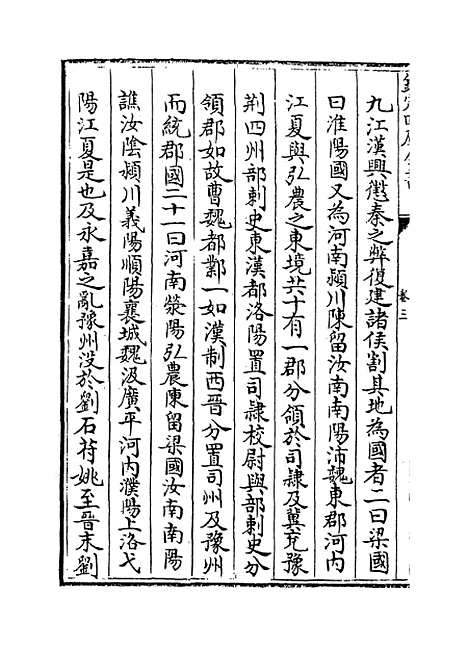 欽定四庫全書
卷三
九江漢興懲秦之弊復建諸侯割其地為國者二曰梁國
曰淮陽國又為河南潁川陳留汝南南陽沛魏東郡河内
江夏與弘農之東境共十有一郡分領於司隸及冀兖豫
荆四州部刺史東漢都洛陽置司隸校尉與部刺史分
領郡如故曹魏都鄴一如漢制西晉分置司州及豫州
而統郡國二十一曰河南滎陽弘農陳留梁國汝南南陽
譙汝陰潁川義陽順陽襄城魏汲廣平河内濮陽上洛弋
陽江夏是也及永嘉之亂豫州没於劉石苻姚至晉末劉